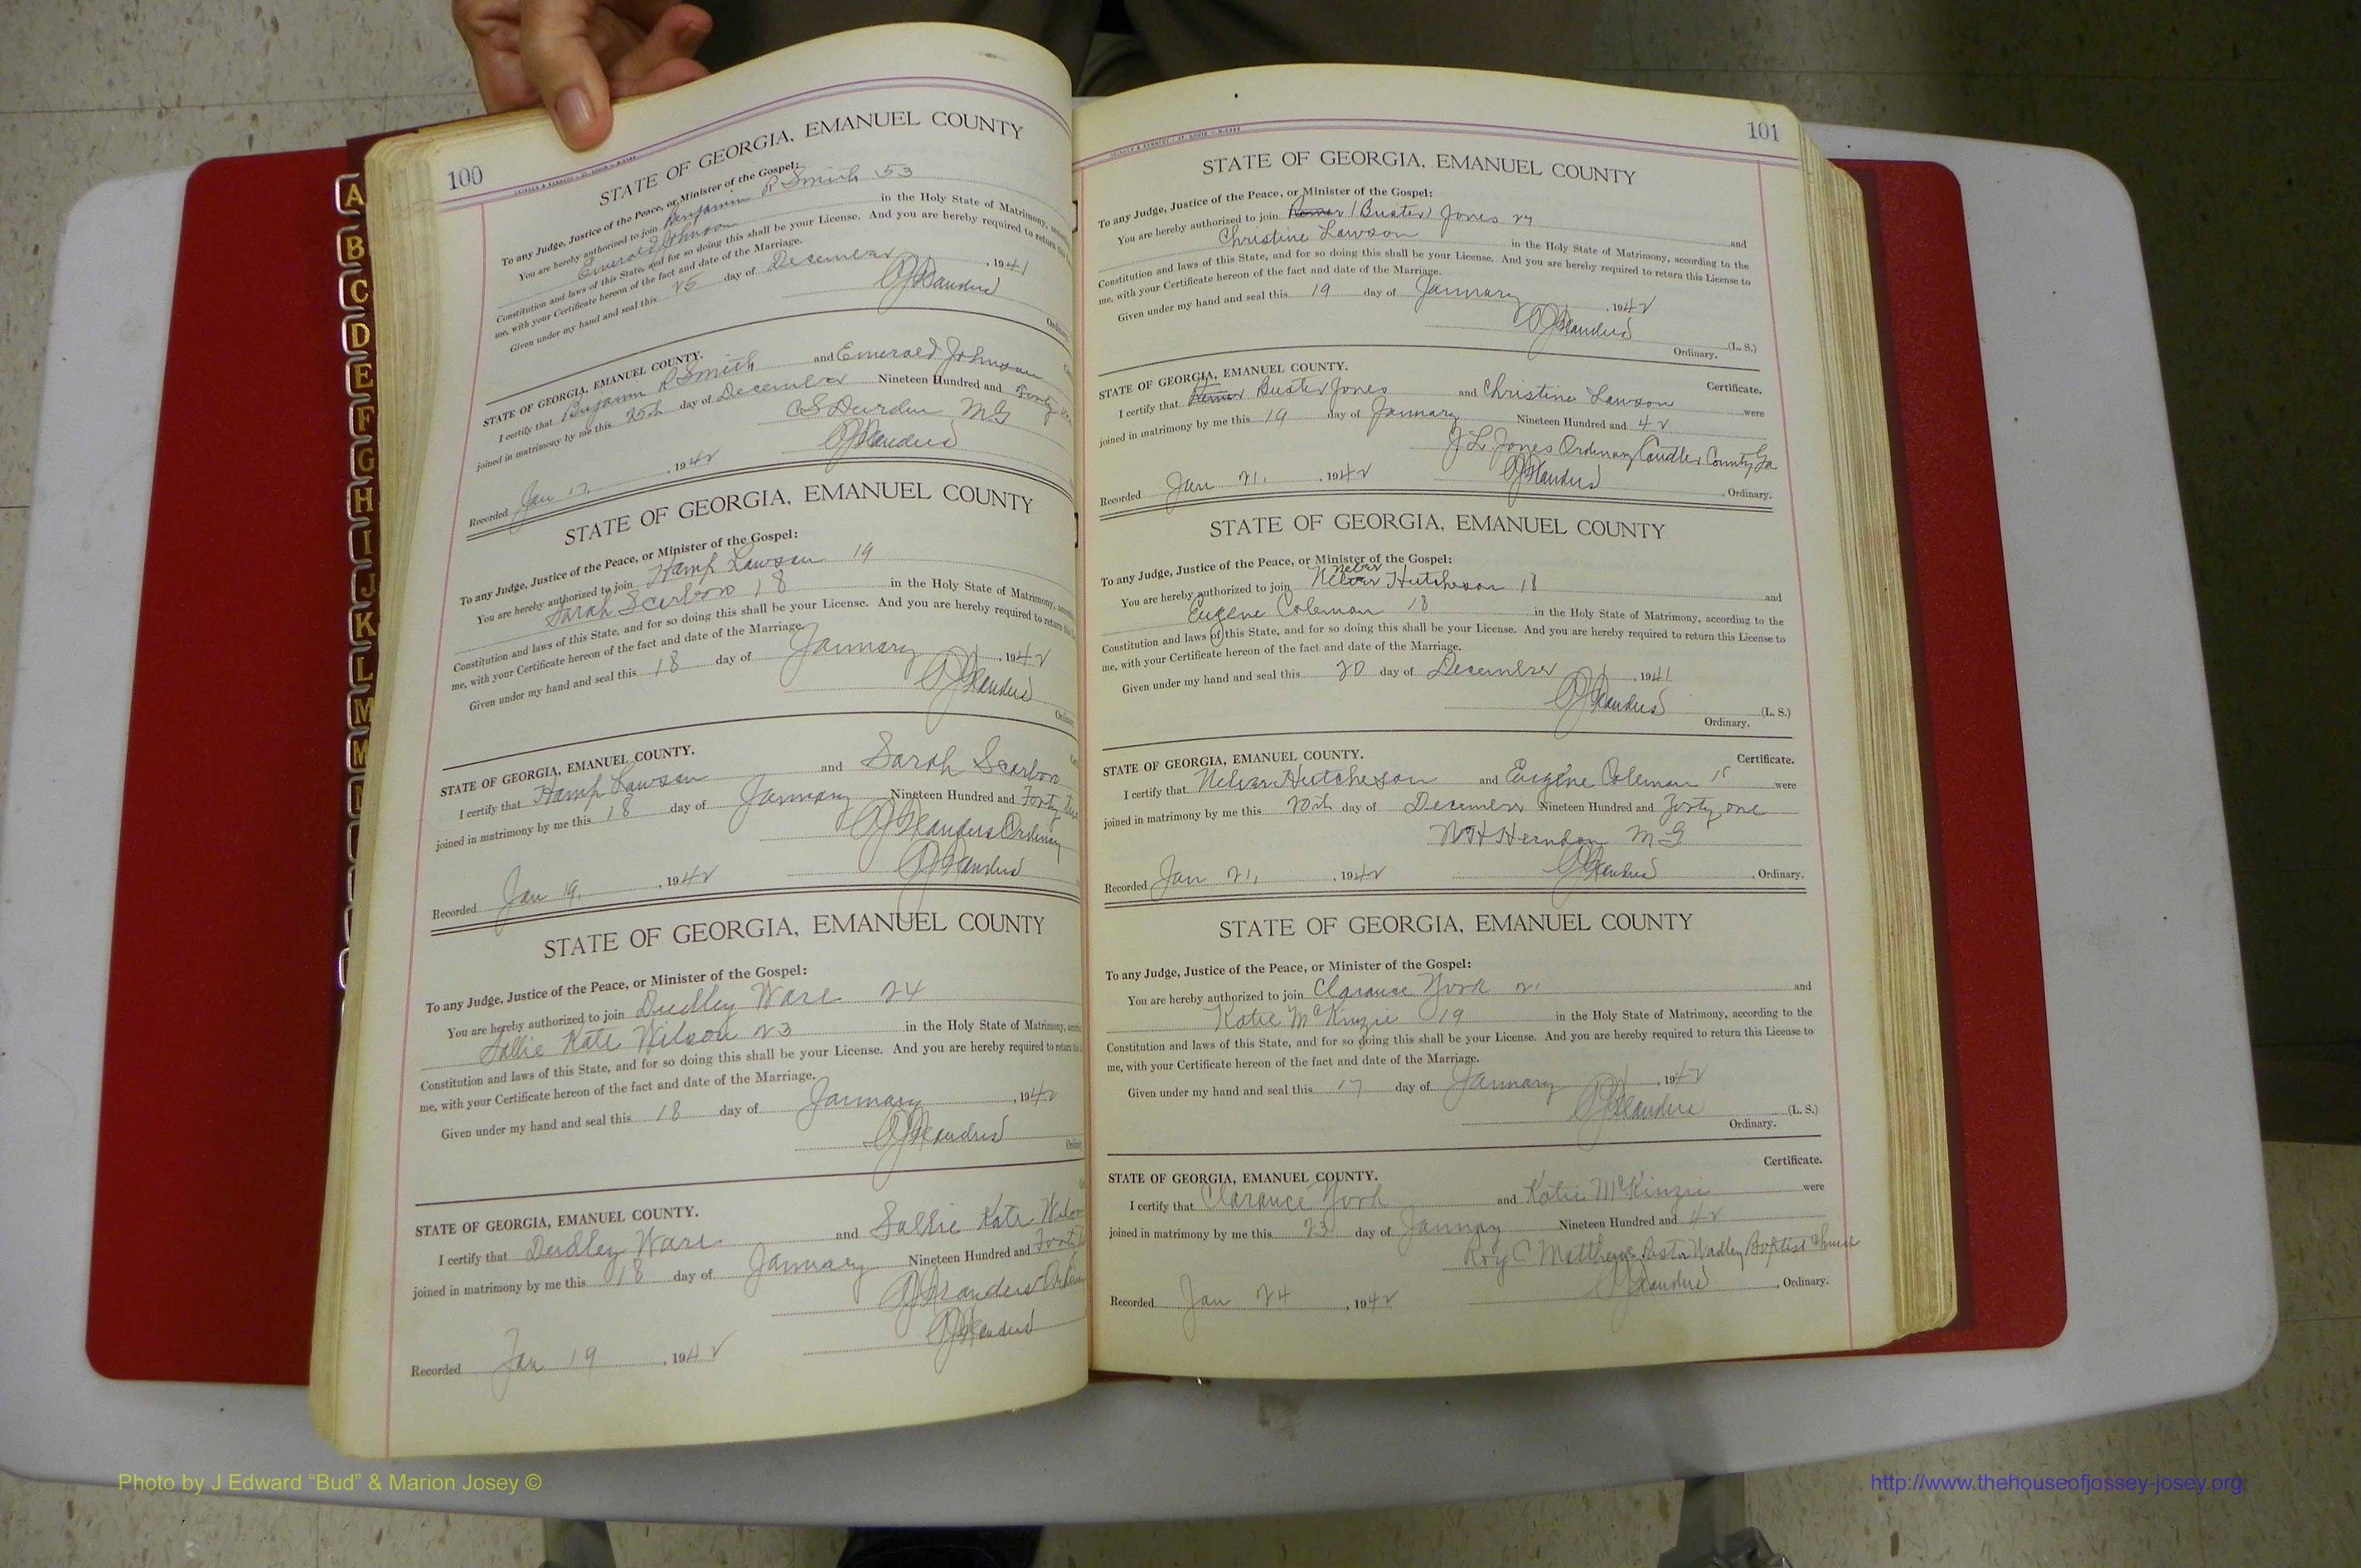 100
STATE OF GEORGIA, EMANUEL COUNTY
To any Judge, Justice of the Peace, or Minister of the Gospel:
You are hereby authorized to join Benjamin R Smith 53
Emerald Johnson in the Holy State of Matrimony,
Constitution and laws of this State, and for so doing this shall be your License. And you are hereby required to return
me, with your Certificate hereon of the fact and date of the Marriage.
Given under my hand and seal this 25 day of December, 1941
STATE OF GEORGIA, EMANUEL COUNTY.
I certify that Benjamin R Smith and Emerald Johnson
joined in matrimony by me this 25th day of December Nineteen Hundred and Forty
C S Durden M G
Recorded Jan 17, 1942
STATE OF GEORGIA, EMANUEL COUNTY
To any Judge, Justice of the Peace, or Minister of the Gospel:
You are hereby authorized to join Hamp Lawson 19
Sarah Scarboro 18 in the Holy State of Matrimony,
Constitution and laws of this State, and for so doing this shall be your License. And you are hereby required to return
me, with your Certificate hereon of the fact and date of the Marriage.
Given under my hand and seal this 18 day of January, 1942
STATE OF GEORGIA, EMANUEL COUNTY.
I certify that Hamp Lawson and Sarah Scarboro
joined in matrimony by me this 18 day of January Nineteen Hundred and Forty Two
Ordinary
Recorded Jan 19, 1942
STATE OF GEORGIA, EMANUEL COUNTY
To any Judge, Justice of the Peace, or Minister of the Gospel:
You are hereby authorized to join Dudley Ware 24
Sallie Kate Wilson 23 in the Holy State of Matrimony,
Constitution and laws of this State, and for so doing this shall be your License. And you are hereby required to return
me, with your Certificate hereon of the fact and date of the Marriage.
Given under my hand and seal this 18 day of January, 1942
STATE OF GEORGIA, EMANUEL COUNTY.
I certify that Dudley Ware and Sallie Kate
joined in matrimony by me this 18 day of January Nineteen Hundred and Forty
Recorded Jan 19, 1942
101
STATE OF GEORGIA, EMANUEL COUNTY
To any Judge, Justice of the Peace, or Minister of the Gospel:
You are hereby authorized to join (Buster) Jones 27 and
Christine Lawson in the Holy State of Matrimony, according to the
Constitution and laws of this State, and for so doing this shall be your License. And you are hereby required to return this License to
me, with your Certificate hereon of the fact and date of the Marriage.
Given under my hand and seal this 19 day of January, 1942
(L. S.)
Ordinary.
STATE OF GEORGIA, EMANUEL COUNTY. Certificate.
I certify that Buster Jones and Christine Lawson were
joined in matrimony by me this 19 day of January Nineteen Hundred and 42
J L Jones Ordinary Candler County Ga
Recorded Jan 21, 1942, Ordinary.
STATE OF GEORGIA, EMANUEL COUNTY
To any Judge, Justice of the Peace, or Minister of the Gospel:
You are hereby authorized to join Hutcheson 18 and
Eugene Coleman 18 in the Holy State of Matrimony, according to the
Constitution and laws of this State, and for so doing this shall be your License. And you are hereby required to return this License to
me, with your Certificate hereon of the fact and date of the Marriage.
Given under my hand and seal this 20 day of December, 1941
(L. S.)
Ordinary.
STATE OF GEORGIA, EMANUEL COUNTY. Certificate.
I certify that Hutcheson and Eugene Coleman were
joined in matrimony by me this 20th day of December Nineteen Hundred and Forty one
Herndon M G
Recorded Jan 21, 1942, Ordinary.
STATE OF GEORGIA, EMANUEL COUNTY
To any Judge, Justice of the Peace, or Minister of the Gospel:
You are hereby authorized to join Clarance York 21 and
Katie McKinzie 19 in the Holy State of Matrimony, according to the
Constitution and laws of this State, and for so doing this shall be your License. And you are hereby required to return this License to
me, with your Certificate hereon of the fact and date of the Marriage.
Given under my hand and seal this 17 day of January, 1942
(L. S.)
Ordinary.
Certificate.
STATE OF GEORGIA, EMANUEL COUNTY.
I certify that Clarance York and Katie McKinzie were
joined in matrimony by me this 23 day of January Nineteen Hundred and 42
Roy C Matthews Pastor Wadley Baptist Church
Recorded Jan 24, 1942, Ordinary.
A
B
C
D
E
F
G
H
I
J
K
L
M
Photo by J Edward “Bud” & Marion Josey ©
http://www.thehouseofjossey-josey.org